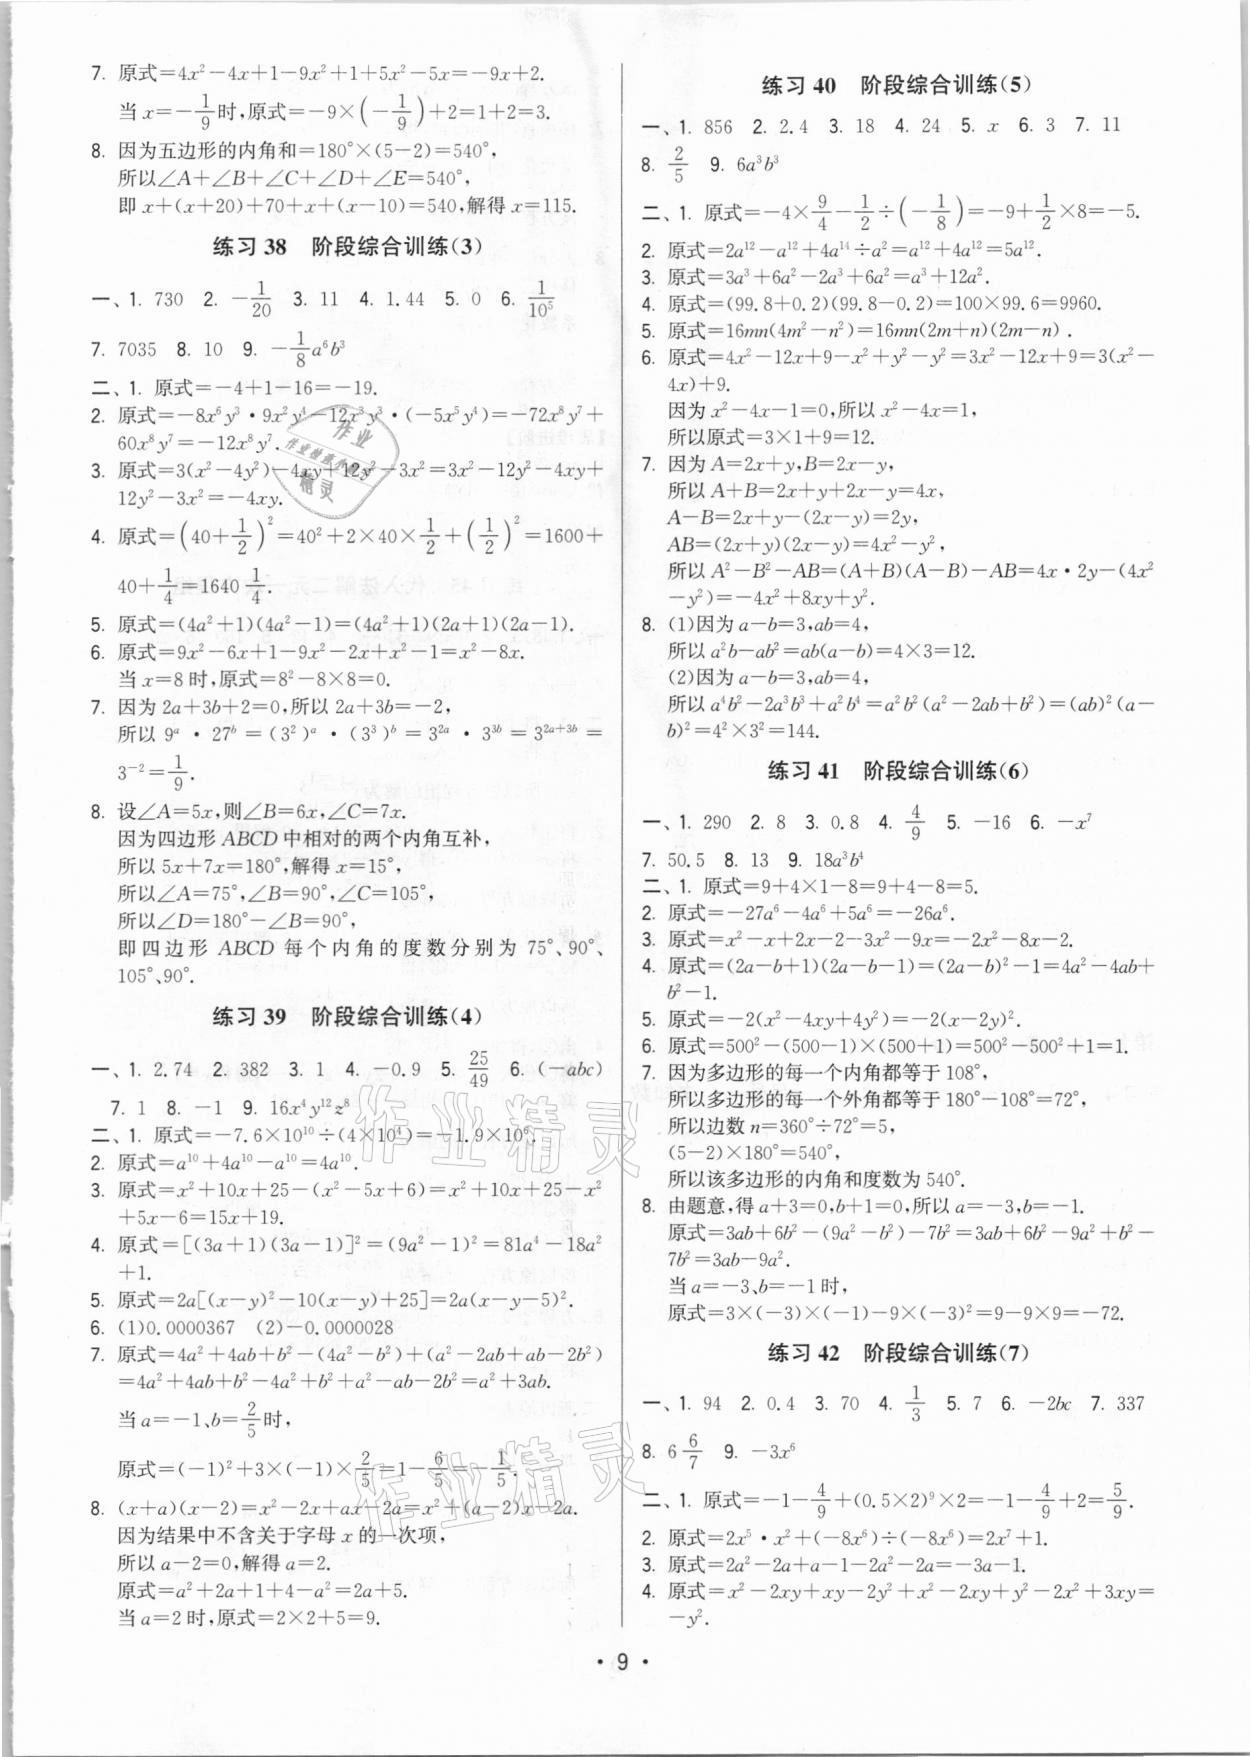 7. 原式=4x²-4x+1-9x²+1+5x²-5x=-9x+2.
当 x=-1/9时,原式=-9×(-1/9)+2=1+2=3.
8. 因为五边形的内角和=180°×(5-2)=540°,
所以∠A+∠B+∠C+∠D+∠E=540°,
即 x+(x+20)+70+x+(x-10)=540,解得 x=115.
练习 38 阶段综合训练(3)
一、1. 730 2. -1/20 3. 11 4. 1.44 5. 0 6. 1/10⁵
7. 7035 8. 10 9. -1/8a⁶b³
二、1. 原式=-4+1-16=-19.
2. 原式=-8x⁶y³·9x²y⁴-12x³y³·(-5x⁵y⁴)=-72x⁸y⁷+
60x⁸y⁷=-12x⁸y⁷.
3. 原式=3(x²-4y²)-4xy+12y²-3x²=3x²-12y²-4xy+
12y²-3x²=-4xy.
4. 原式=(40+1/2)²=40²+2×40×1/2+(1/2)²=1600+
40+1/4=1640 1/4.
5. 原式=(4a²+1)(4a²-1)=(4a²+1)(2a+1)(2a-1).
6. 原式=9x²-6x+1-9x²-2x+x²-1=x²-8x.
当 x=8 时,原式=8²-8×8=0.
7. 因为 2a+3b+2=0,所以 2a+3b=-2,
所以 9ᵃ·27ᵇ=(3²)ᵃ·(3³)ᵇ=3²ᵃ·3³ᵇ=3²ᵃ⁺³ᵇ=
3⁻²=1/9.
8. 设∠A=5x,则∠B=6x,∠C=7x.
因为四边形 ABCD 中相对的两个内角互补,
所以 5x+7x=180°,解得 x=15°,
所以∠A=75°,∠B=90°,∠C=105°,
所以∠D=180°-∠B=90°,
即四边形 ABCD 每个内角的度数分别为 75°、90°、
105°、90°.
练习 39 阶段综合训练(4)
一、1. 2.74 2. 382 3. 1 4. -0.9 5. 25/49 6. (-abc)
7. 1 8. -1 9. 16x⁴y¹²z⁸
二、1. 原式=-7.6×10¹⁰÷(4×10⁴)=-1.9×10⁶.
2. 原式=a¹⁰+4a¹⁰-a¹⁰=4a¹⁰.
3. 原式=x²+10x+25-(x²-5x+6)=x²+10x+25-x²
+5x-6=15x+19.
4. 原式=[(3a+1)(3a-1)]²=(9a²-1)²=81a⁴-18a²
+1.
5. 原式=2a[(x-y)²-10(x-y)+25]=2a(x-y-5)².
6. (1)0.0000367 (2)-0.0000028
7. 原式=4a²+4ab+b²-(4a²-b²)+(a²-2ab+ab-2b²)
=4a²+4ab+b²-4a²+b²+a²-ab-2b²=a²+3ab.
当 a=-1、b=2/5时,
原式=(-1)²+3×(-1)×2/5=1-6/5=-1/5.
8. (x+a)(x-2)=x²-2x+ax-2a=x²+(a-2)x-2a.
因为结果中不含关于字母 x 的一次项,
所以 a-2=0,解得 a=2.
原式=a²+2a+1+4-a²=2a+5.
当 a=2 时,原式=2×2+5=9.
练习 40 阶段综合训练(5)
一、1. 856 2. 2.4 3. 18 4. 24 5. x 6. 3 7. 11
8. 2/5 9. 6a³b³
二、1. 原式=-4×9/4-1/2÷(-1/8)=-9+1/2×8=-5.
2. 原式=2a¹²-a¹²+4a¹⁴÷a²=a¹²+4a¹²=5a¹².
3. 原式=3a³+6a²-2a³+6a²=a³+12a².
4. 原式=(99.8+0.2)(99.8-0.2)=100×99.6=9960.
5. 原式=16mn(4m²-n²)=16mn(2m+n)(2m-n).
6. 原式=4x²-12x+9-x²+y²-y²=3x²-12x+9=3(x²-
4x)+9.
因为 x²-4x-1=0,所以 x²-4x=1,
所以原式=3×1+9=12.
7. 因为 A=2x+y,B=2x-y,
所以 A+B=2x+y+2x-y=4x,
A-B=2x+y-(2x-y)=2y,
AB=(2x+y)(2x-y)=4x²-y²,
所以 A²-B²-AB=(A+B)(A-B)-AB=4x·2y-(4x²
-y²)=-4x²+8xy+y².
8. (1)因为 a-b=3,ab=4,
所以 a²b-ab²=ab(a-b)=4×3=12.
(2)因为 a-b=3,ab=4,
所以 a⁴b²-2a³b³+a²b⁴=a²b²(a²-2ab+b²)=(ab)²(a-
b)²=4²×3²=144.
练习 41 阶段综合训练(6)
一、1. 290 2. 8 3. 0.8 4. 4/9 5. -16 6. -x⁷
7. 50.5 8. 13 9. 18a³b⁴
二、1. 原式=9+4×1-8=9+4-8=5.
2. 原式=-27a⁶-4a⁶+5a⁶=-26a⁶.
3. 原式=x²-x+2x-2-3x²-9x=-2x²-8x-2.
4. 原式=(2a-b+1)(2a-b-1)=(2a-b)²-1=4a²-4ab+
b²-1.
5. 原式=-2(x²-4xy+4y²)=-2(x-2y)².
6. 原式=500²-(500-1)×(500+1)=500²-500²+1=1.
7. 因为多边形的每一个内角都等于 108°,
所以多边形的每一个外角都等于 180°-108°=72°,
所以边数 n=360°÷72°=5,
(5-2)×180°=540°,
所以该多边形的内角和度数为 540°.
8. 由题意,得 a+3=0,b+1=0,所以 a=-3,b=-1.
原式=3ab+6b²-(9a²-b²)-7b²=3ab+6b²-9a²+b²-
7b²=3ab-9a².
当 a=-3、b=-1 时,
原式=3×(-3)×(-1)-9×(-3)²=9-9×9=-72.
练习 42 阶段综合训练(7)
一、1. 94 2. 0.4 3. 70 4. 1/3 5. 7 6. -2bc 7. 337
8. 6 6/7 9. -3x⁶
二、1. 原式=-1-4/9+(0.5×2)⁹×2=-1-4/9+2=5/9.
2. 原式=2x⁵·x²+(-8x⁶)÷(-8x⁶)=2x⁷+1.
3. 原式=2a²-2a+a-1-2a²-2a=-3a-1.
4. 原式=x²-2xy+xy-2y²+x²-2xy+y²-2x²+3xy=
-y².
·9·
作业精灵
作业精灵
作业
精灵